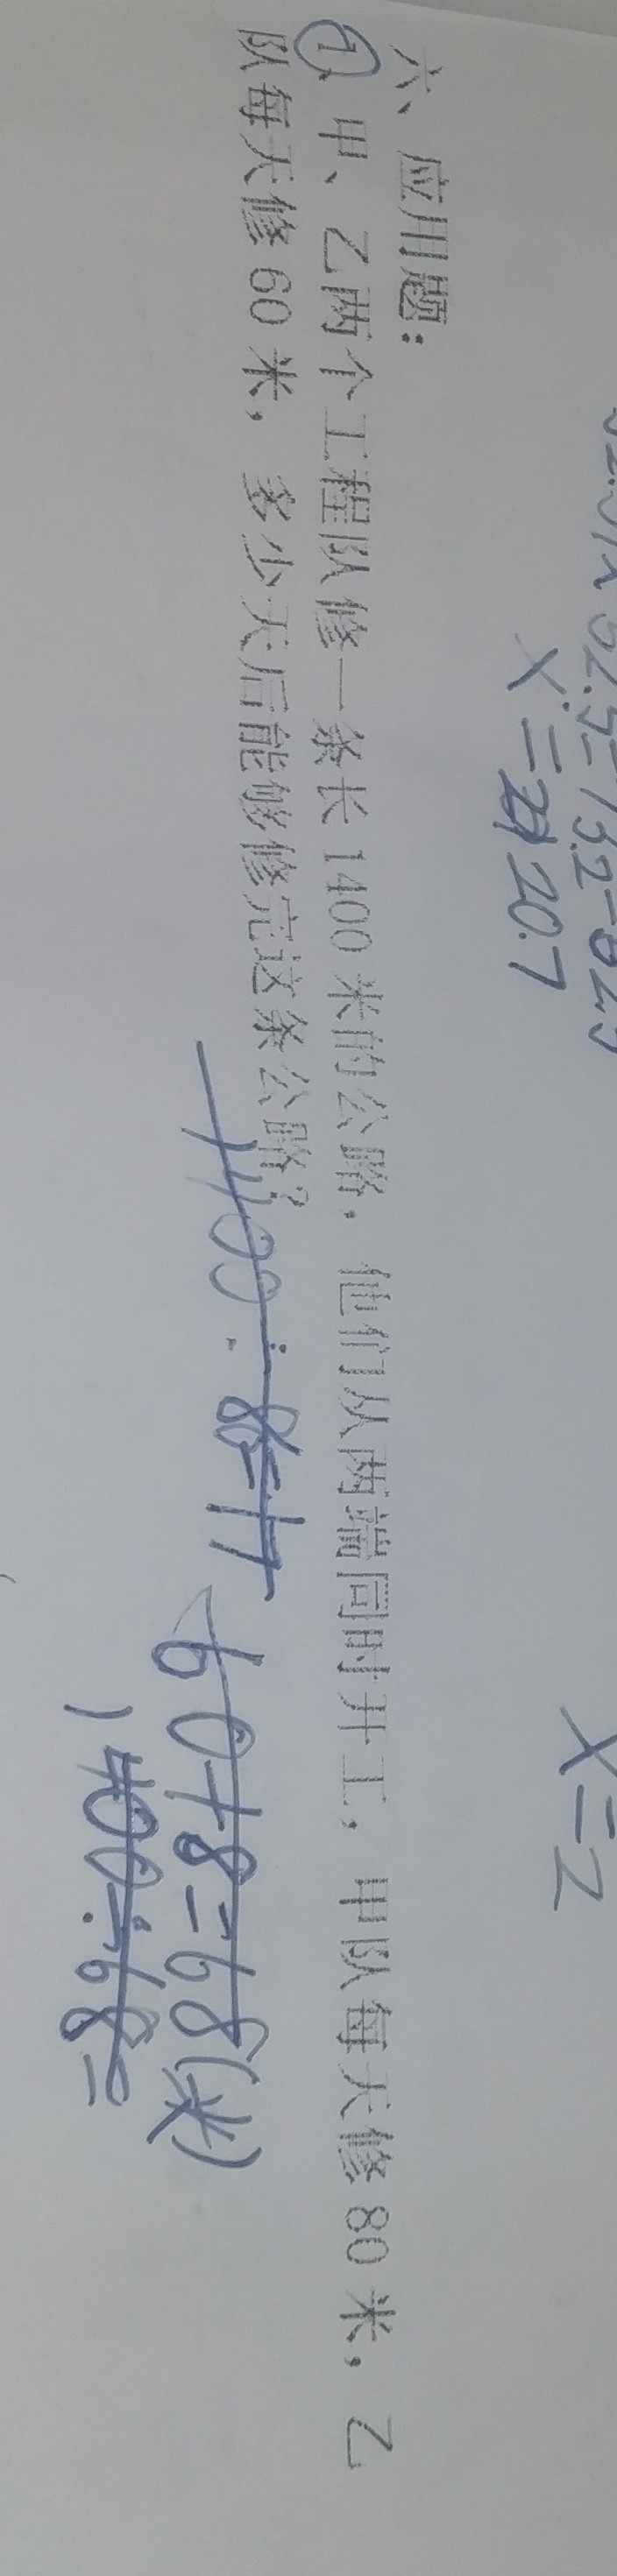 X=2
X=20.7
六、应用题:
1、甲、乙两个工程队修一条长1400米的公路,他们从两端同时开工,甲队每天修80米,乙
队每天修60米,多少天后能够修完这条公路?
1400÷8=17
60+8=68(米)
1400÷68=